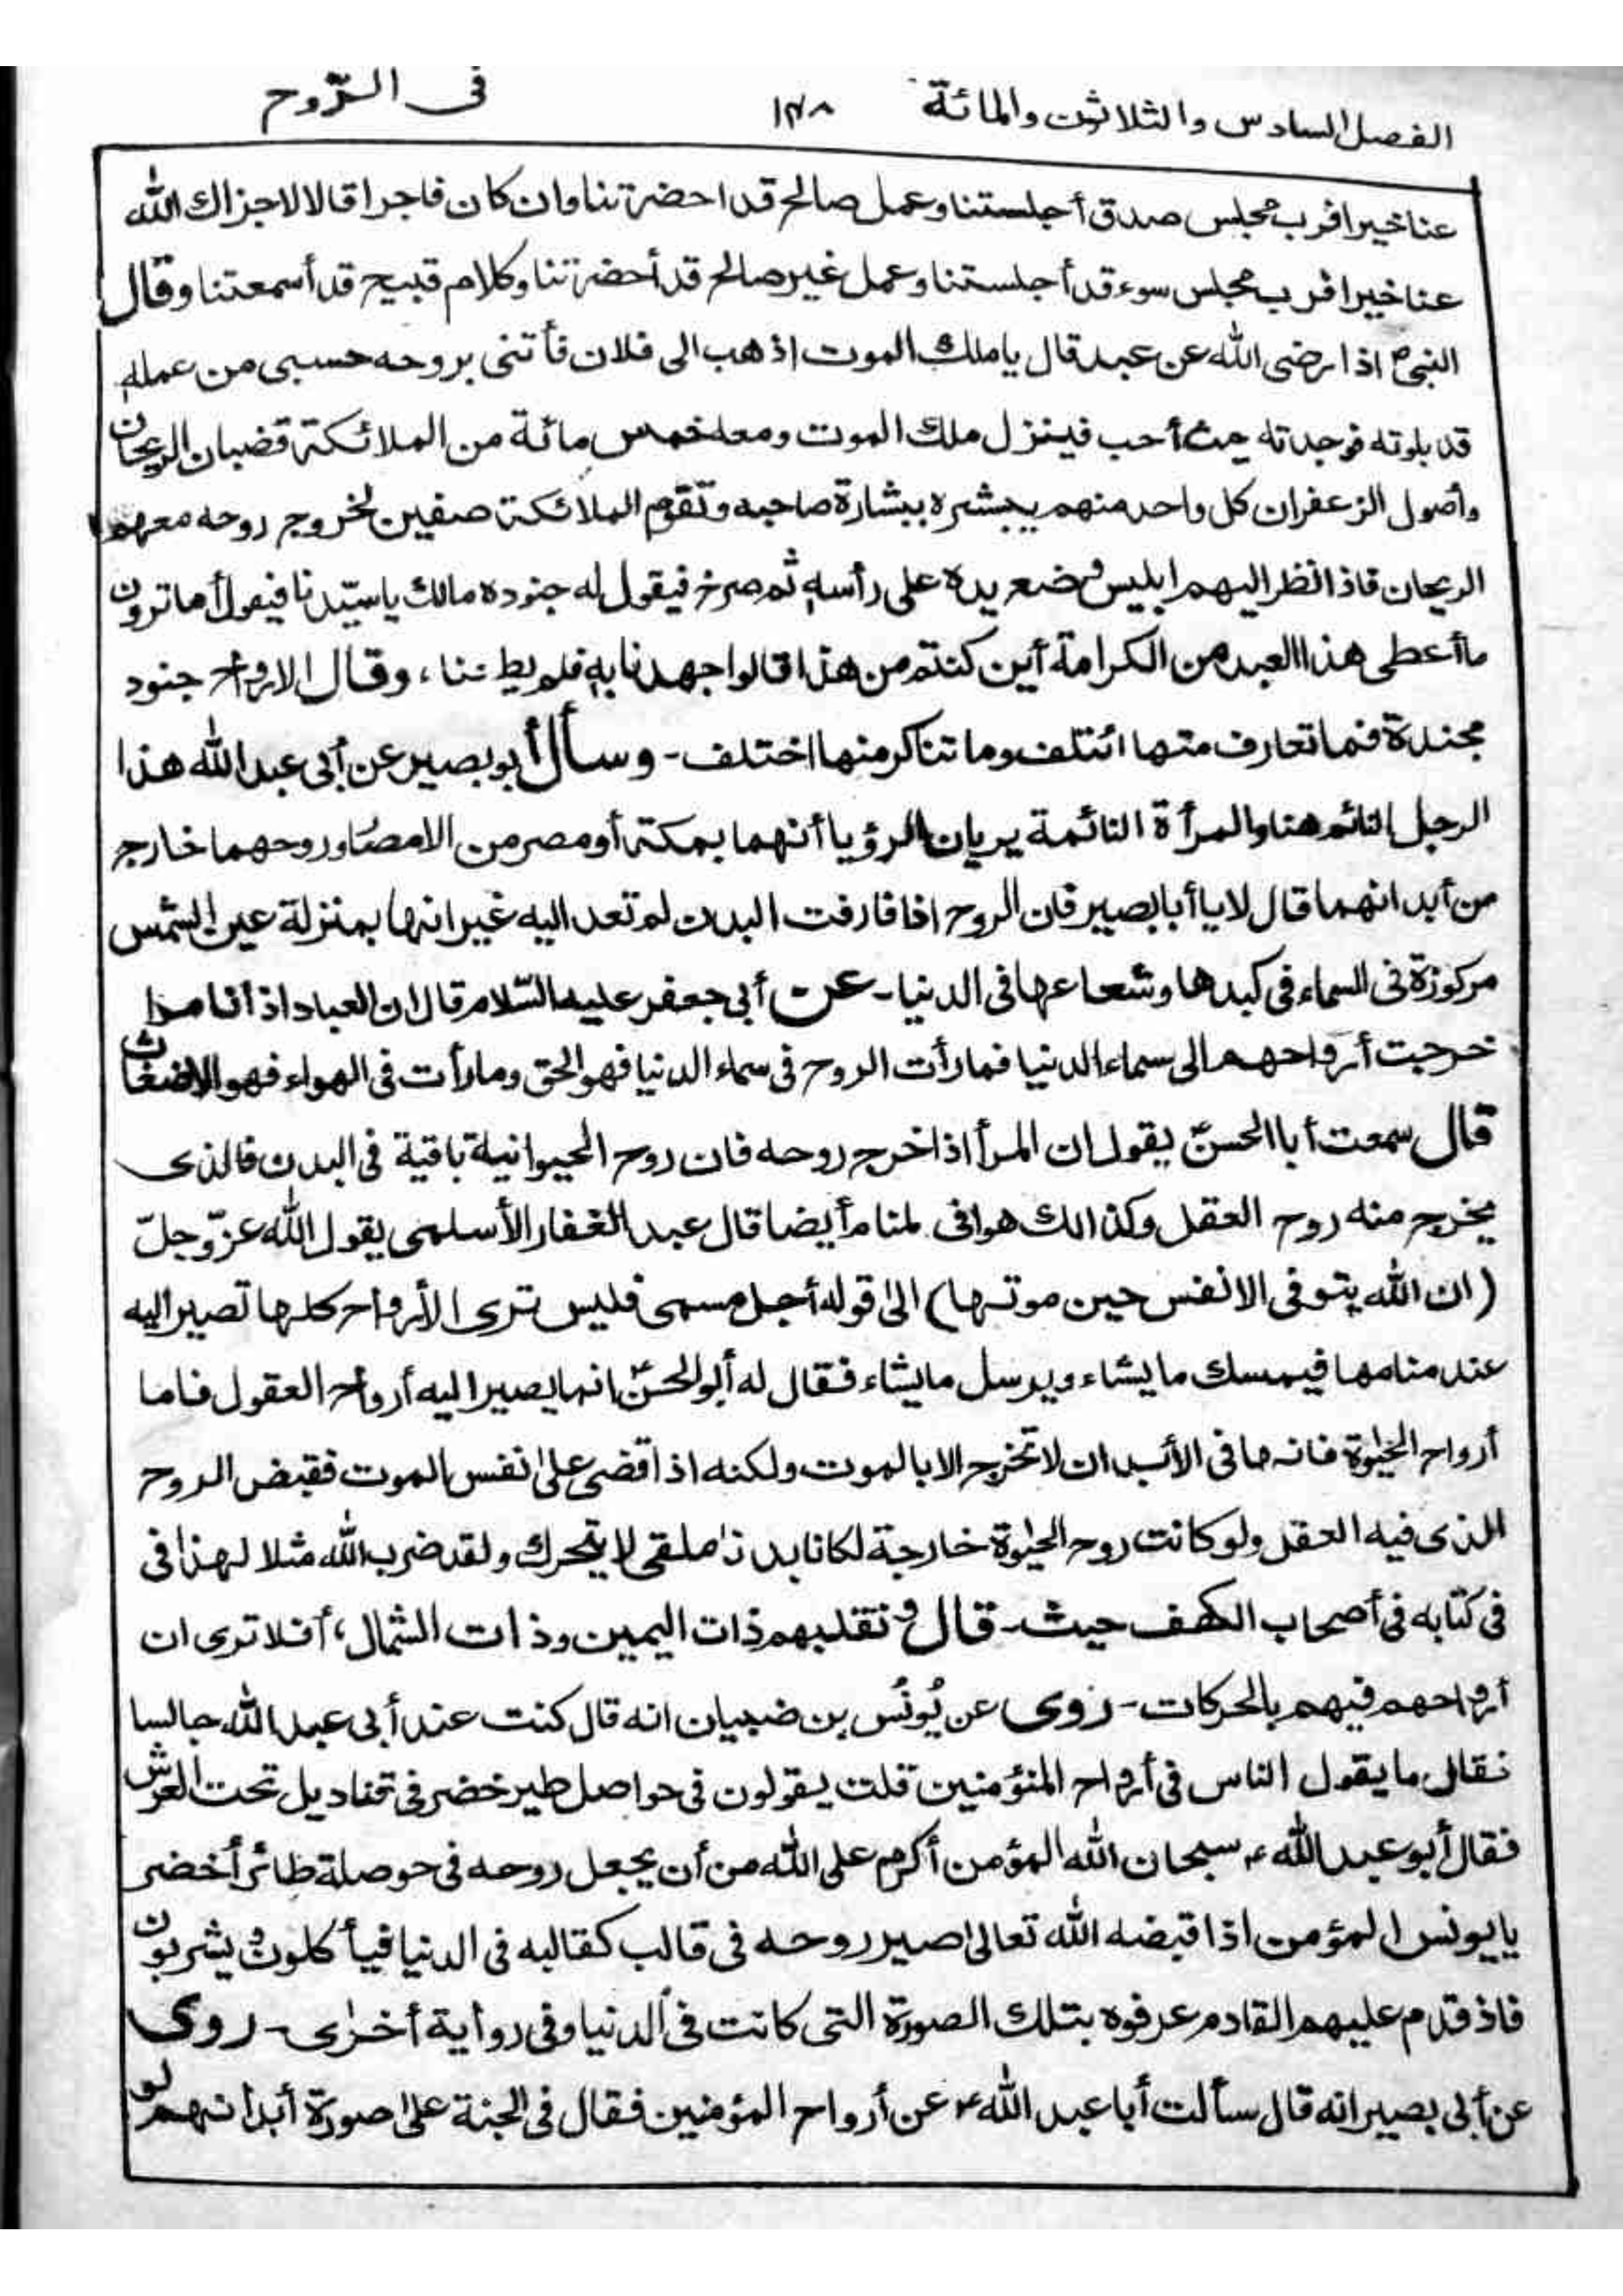 الفصل السادس والثلاثون والمائة ١٣٨ فى الرّوح
عنا خيرا فرب مجلس صدق أجلستنا وعمل صالح قد احضرتنا وان كان فاجرا قالا لا جزاك الله
عنا خيرا فرب مجلس سوء قد أجلستنا وعمل غير صالح قد أحضرتنا وكلام قبيح قد أسمعتنا وقال
النبى ص اذا رضى الله عن عبد قال يا ملك الموت اذهب الى فلان فأتنى بروحه حسبى من عمله
قد بلوته فوجدته حيث أحب فينزل ملك الموت ومعه خمس مائة من الملائكة قضبان الريحان
وأصول الزعفران كل واحد منهم يبشره ببشارة صاحبه وتقوم الملائكة صفين لخروج روحه معهم
الريحان فاذا نظر اليهم ابليس وضع يده على رأسه ثم صرخ فيقول له جنوده مالك يا سيّدنا فيقول أما ترون
ما أعطى هذا العبد من الكرامة أين كنتم من هذا قالوا جهدنا به فلم يطعنا، وقال الارواح جنود
مجندة فما تعارف منها ائتلف وما تناكر منها اختلف - وسأل أبو بصير عن أبى عبد الله هذا
الرجل النائم هنا والمرأة النائمة يريان الرؤيا أنهما بمكة أو مصر من الامصار وروحهما خارج
من أبدانهما قال لا يا أبا بصير فان الروح اذا فارقت البدن لم تعد اليه غير انها بمنزلة عين الشمس
مركوزة فى السماء فى كبدها وشعاعها فى الدنيا - عن أبى جعفر عليه السّلام قال ان العباد اذا ناموا
خرجت أرواحهم الى سماء الدنيا فما رأت الروح فى سماء الدنيا فهو الحق وما رأت فى الهواء فهو الاضغاث
قال سمعت أبا الحسنّ يقول ان المرأ اذا خرج روحه فان روح الحيوانية باقية فى البدن فالذى
يخرج منه روح العقل وكذالك هو افى لمنام أيضا قال عبد الغفار الأسلمى يقول الله عزّ وجلّ
(ان الله يتوفى الانفس حين موتها) الى قوله أجل مسمى فليس ترى الأرواح كلها تصير اليه
عند منامها فيمسك ما يشاء ويرسل ما يشاء فقال له أبو الحسنّ انما يصير اليه أرواح العقول فاما
أرواح الحيٰوة فانها فى الأبدان لا تخرج الا بالموت ولكنه اذا قضى علىٰ نفس الموت فقبض الروح
الذى فيه العقل ولو كانت روح الحيٰوة خارجة لكانا بدنا ملقى لا يتحرك ولقد ضرب الله مثلا لهذا فى
فى كتابه فى أصحاب الكهف حيث - قال ونقلبهم ذات اليمين وذات الشمال، أفلا ترى ان
أرواحهم فيهم بالحركات - روى عن يُونُس بن ضبيان انه قال كنت عند أبى عبد الله جالسا
فقال ما يقول الناس فى أرواح المنؤمنين قلت يقولون فى حواصل طير خضر فى قناديل تحت العرش
فقال أبو عبد الله ع سبحان الله المؤمن أكرم على الله من أن يجعل روحه فى حوصلة طائر أخضر
يا يونس المؤمن اذا قبضه الله تعالىٰ صير روحه فى قالب كقالبه فى الدنيا فيأكلون ويشربون
فاذ قدم عليهم القادم عرفوه بتلك الصورة التى كانت فى الدنيا وفى رواية أخرٰى - روى
عن أبى بصير انه قال سألت أبا عبد الله ع عن أرواح المؤمنين فقال فى الجنة علىٰ صورة أبدانهم لو